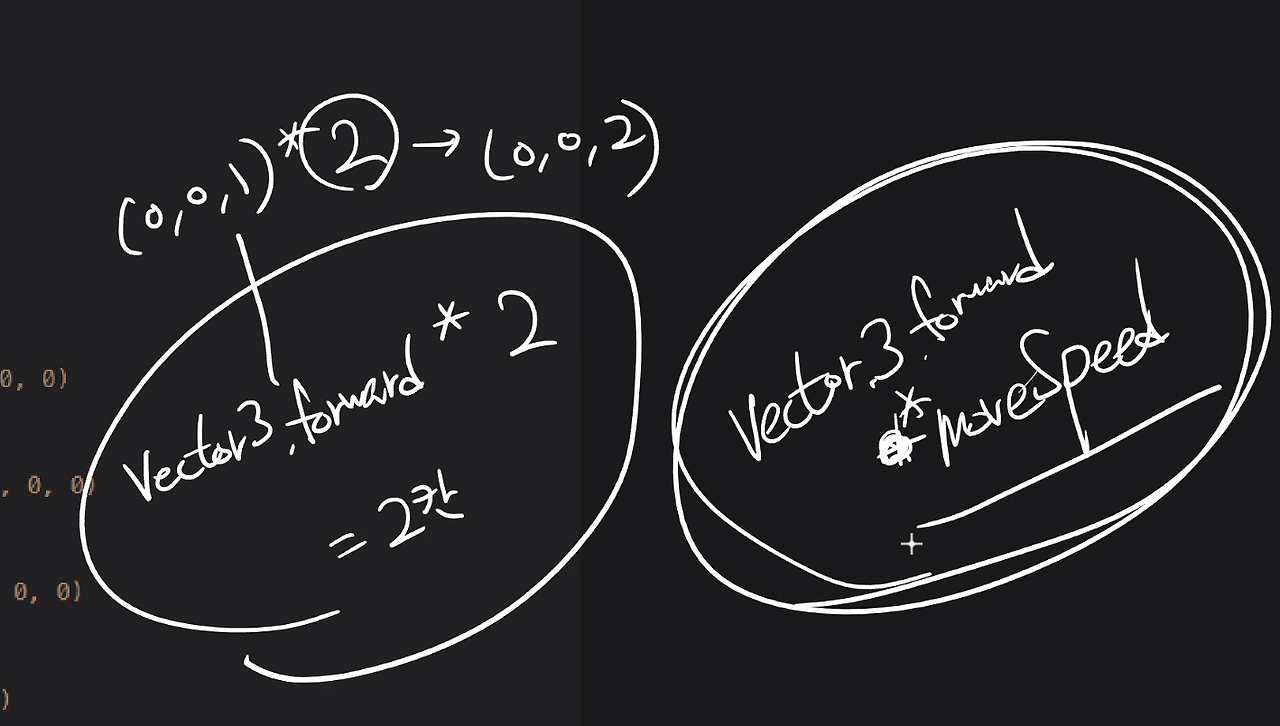 (0,0,1)*2 → (0,0,2)
Vector3.forward * 2
= 2칸
Vector3.forward
* moveSpeed
0, 0)
, 0, 0)
0, 0)
)